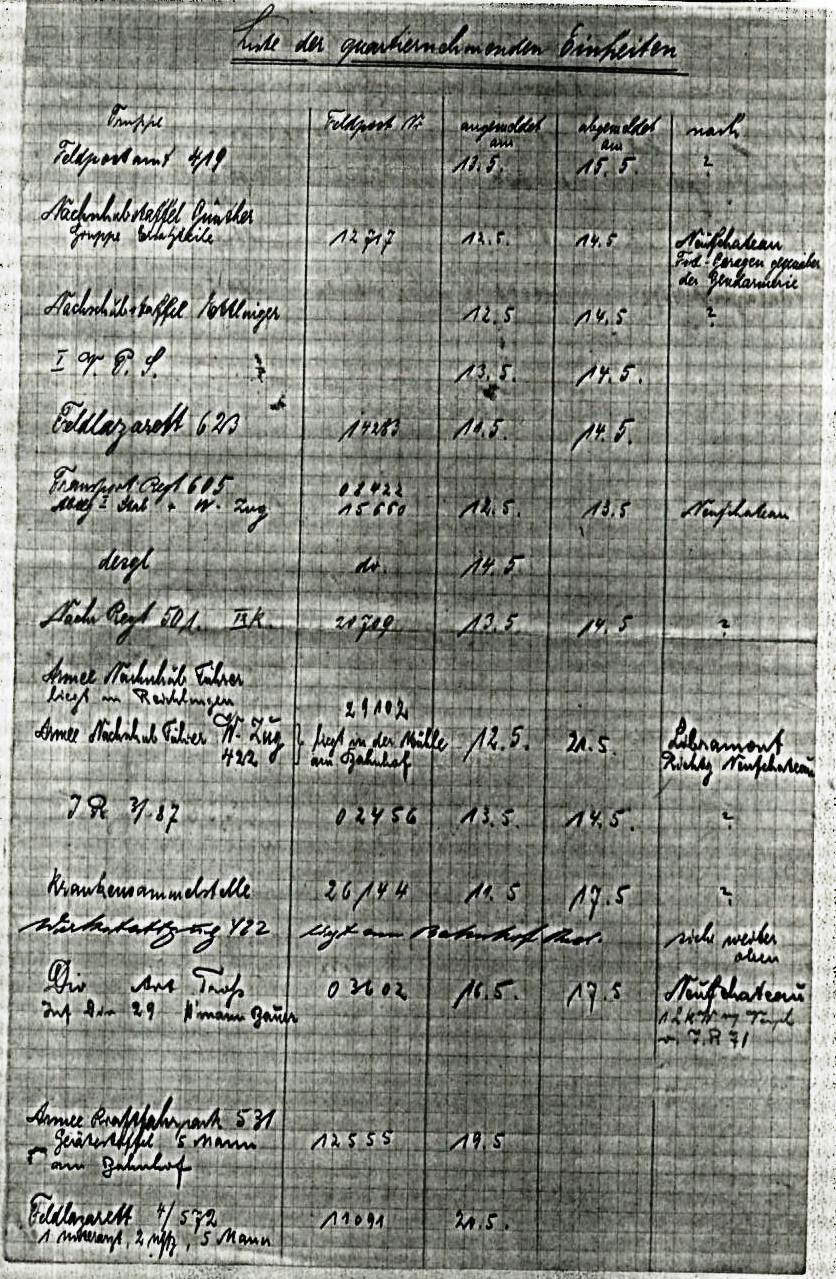 Liste der quartiernehmenden Einheiten
Truppe Feldpost Nr angemeldet am abgemeldet am nach
Feldpostamt 419 13.5. 15.5. ?
Nachschubstaffel Günther
Gruppe Ersatzteile 12717 12.5. 14.5 Neufchateau
der Gendarmerie
Nachschubstaffel Ettlinger 12.5 14.5 ?
13.5. 14.5.
Feldlazarett 623 14283 11.5. 14.5.
Transport Regt 605 08422
Stab + W. Zug 15660 12.5. 13.5 Neufchateau
desgl do. 14.5
Nachr Regt 501. 21719 13.5 14.5 ?
Armee Nachschub Führer
liegt in Reichlingen 29102
Armee Nachschub Führer W. Zug liegt in der Mühle 12.5. 21.5. Libramont
422 am Bahnhof Richtg Neufchateau
I R 3/87 02456 13.5. 14.5. ?
Krankensammelstelle 26144 11.5 17.5 ?
Werkstattzug 422 liegt am Bahnhof siehe weiter
oben
Div Art Troß 03602 16.5. 17.5 Neufchateau
Inf Div 29 H'mann Bauer
v. I.R 71
Armee Kraftfahrpark 531
Gerätestaffel 5 Mann 12555 19.5
am Bahnhof
Feldlazarett 4/572 11091 21.5.
1 Unterarzt, 2 Uffz, 5 Mann